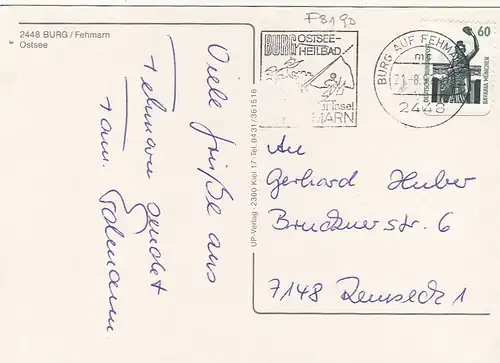 2448 BURG / Fehmarn
Ostsee
Viele Grüße aus
Fehmarn sendet
Fam.
UP-Verlag · 2300 Kiel 17 / Tel. 0431 / 361516
F8190
BURG OSTSEE-
HEILBAD
Insel
MARN
BURG AUF FEHMA
ma
21.-8.
2448
60
DEUTSCHE BUNDESPOST
BAVARIA MÜNCHEN
An
Gerhard Huber
Brucknerstr. 6
7148 Remseck 1